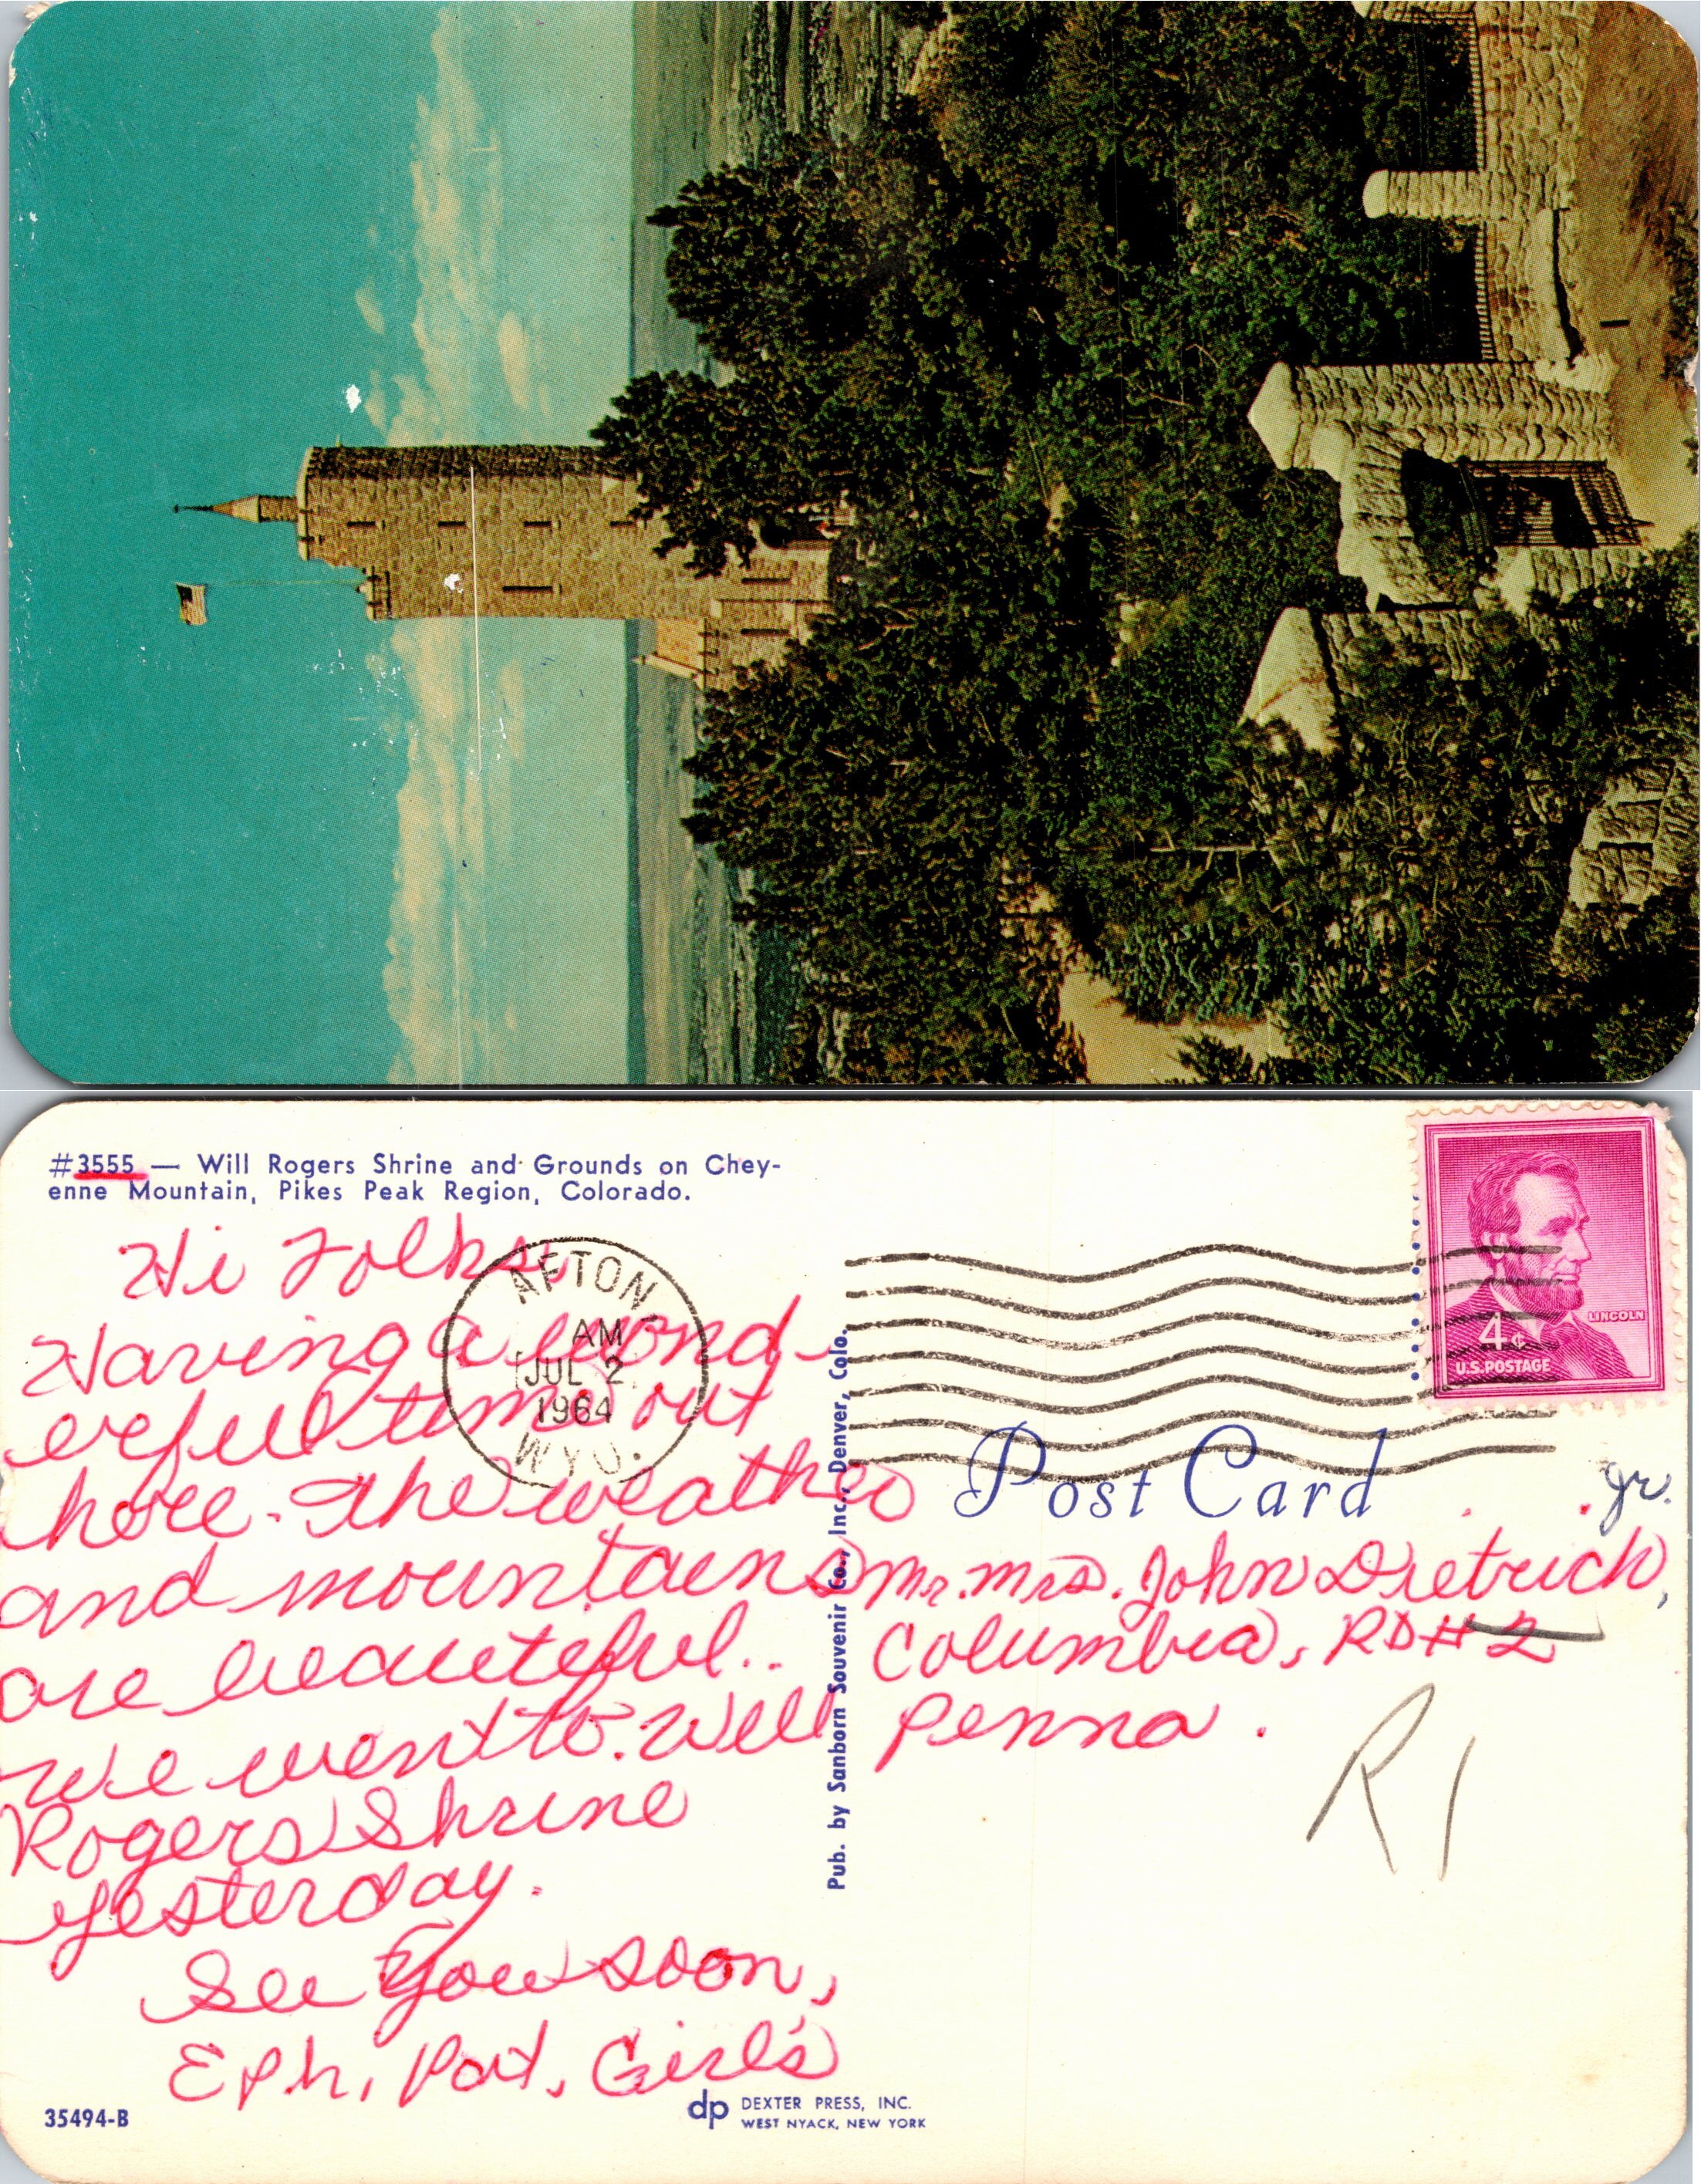 #3555 — Will Rogers Shrine and Grounds on Chey-
enne Mountain, Pikes Peak Region, Colorado.
Hi Folks,
Having a wond-
erful time out
here. The weather
and mountains
are beautiful..
We went to Will
Rogers Shrine
yesterday.
See You soon,
Eph, Pat, Girl's
35494-B
AFTON
AM
JUL 2
1964
WYO.
Pub. by Sanborn Souvenir Co., Inc., Denver, Colo.
LINCOLN
4¢
U.S. POSTAGE
Post Card
Jr.
Mr. Mrs. John Dietrich,
Columbia, RD#2
Penna.
R1
dp DEXTER PRESS, INC.
WEST NYACK, NEW YORK